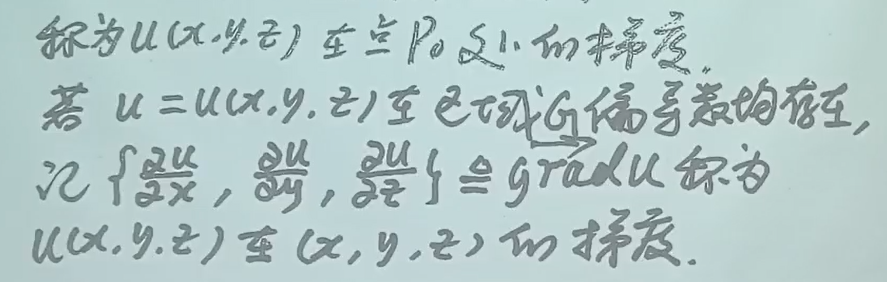 称为u(x.y.z)在点P₀处的梯度.
若 u=u(x.y.z)在区域G偏导数均存在,
记{∂u/∂x, ∂u/∂y, ∂u/∂z}≜grad u 称为
u(x.y.z)在(x,y,z)的梯度.